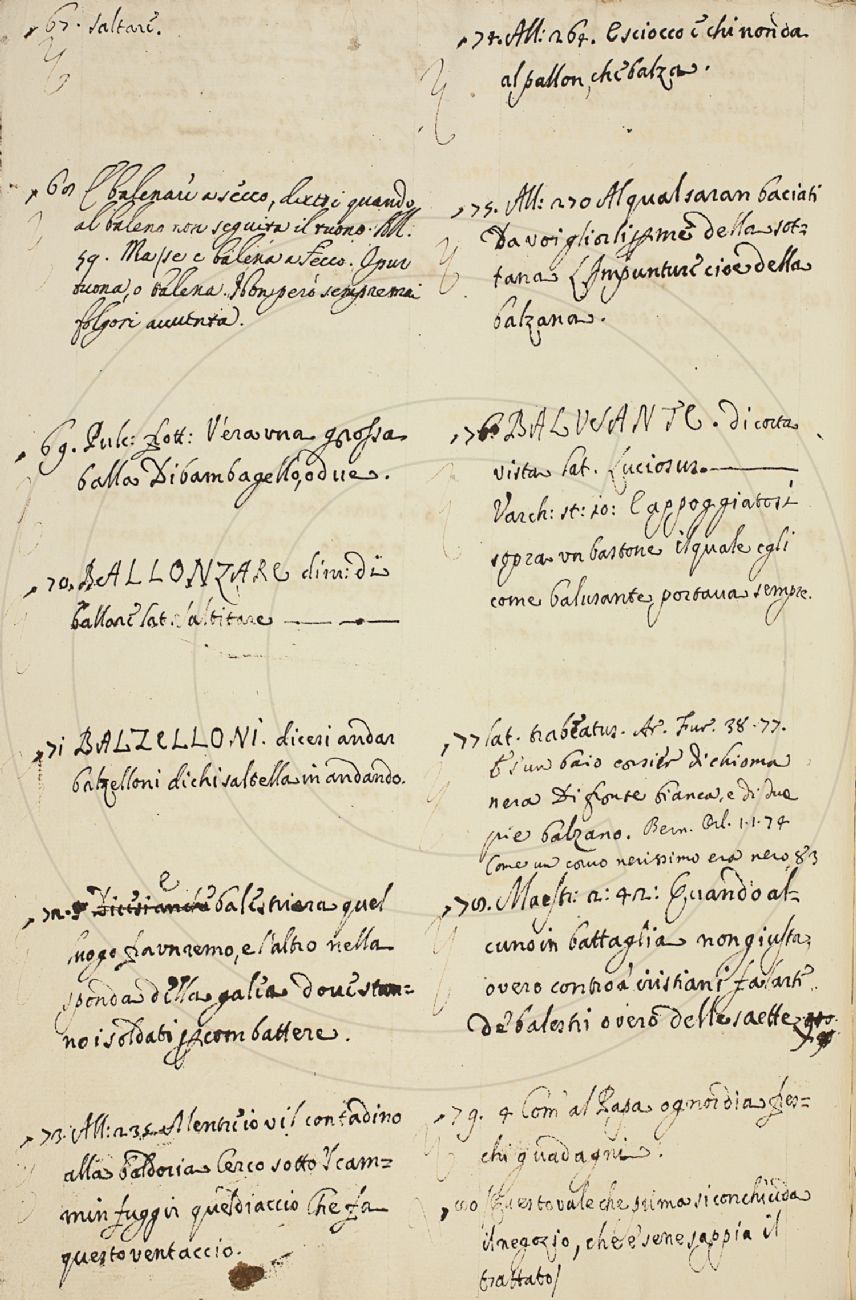 67. saltare.
68 E balenare a secco, dicesi quando
al baleno non seguita il tuono. All.
59. Ma se e balena a secco. Opur
tuona, o balena. Non però sempre mai
folgori avventa.
69. Pulc: frott: V'era una grossa
balla Di bambagello, o due.
70. BALLONZARE dim: di
ballare lat. saltitare
71 BALZELLONI. dicesi andar
balzelloni di chi saltella in andando.
72. è balestriera quel
luogo fra un remo, e l'altro nella
sponda della galea dove stan=
no i soldati p combattere.
73. All: 235. Mentre io vil contadino
alla baldoria Cerco sotto 'l cam=
min fuggir quel diaccio Che fa
questo ventaccio.
74. All: 264. E sciocco è chi non dà
al pallon, che balza.
75. All: 270 Al qual saran baciati
Da voi gli orli pme della sot=
tana L'Impunture cioè della
balzana.
76. BALUSANTE. di corta
vista lat. Luciosus.
Varch: st: 10: E appoggiatosi
sopra un bastone il quale egli
come balusante portava sempre.
77 lat. trabeatus. Ar. Fur. 38. 77.
E s'un baio corsier di chioma
nera Di fronte bianca, e di due
pie balzano. Bern. Orl. 1. 1. 74
Come un corvo nerissimo era nero 83
78. Maestr: 2: 42: Quando al=
cuno in battaglia non giusta,
overo contro a' cristiani fa l'arte
De' balestri overo delle saette
79. 4 Com' al Papa ognordia fres=
chi guadagni.
80 Questo vale che prima si conchiuda
il negozio, che e' se ne sappia il
trattato